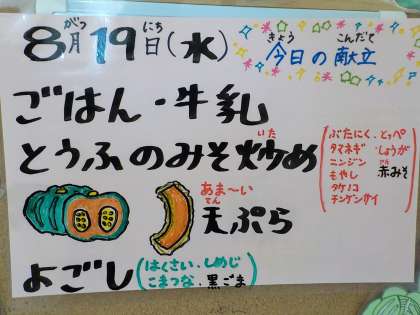 8月19日(水)
がつ にち
今日の献立
きょう こんだて
ごはん・牛乳
とうふのみそ炒め
いた
ぶたにく・とっぺ
タマネギ・しょうが
ニンジン 赤みそ
もやし
タケノコ
チンゲンサイ
あま〜い
天ぷら
てん
よごし
はくさい・しめじ
こまつな・黒ごま